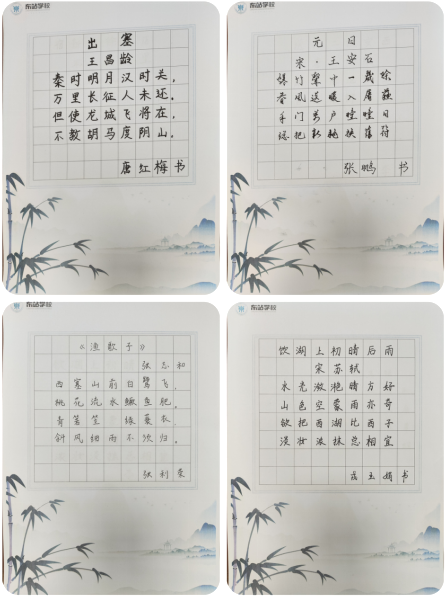 东站学校
出塞
王昌龄
秦时明月汉时关，
万里长征人未还。
但使龙城飞将在，
不教胡马度阴山。
唐红梅书
东站学校
元日
宋·王安石
爆竹声中一岁除
春风送暖入屠苏
千门万户曈曈日
总把新桃换旧符
张鹏 书
东站学校
《渔歌子》
张志和
西塞山前白鹭飞，
桃花流水鳜鱼肥。
青箬笠，绿蓑衣，
斜风细雨不须归。
张利荣
东站学校
饮湖上初晴后雨
宋苏轼
水光潋滟晴方好
山色空蒙雨亦奇
欲把西湖比西子
淡妆浓抹总相宜
王娟书